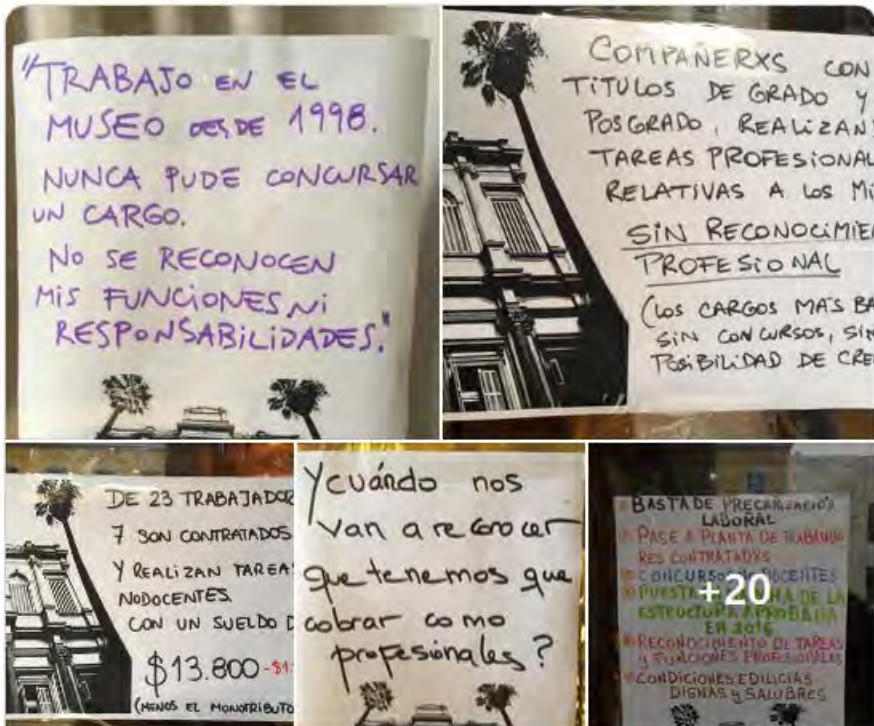 "TRABAJO EN EL
MUSEO DESDE 1998.
NUNCA PUDE CONCURSAR
UN CARGO.
NO SE RECONOCEN
MIS FUNCIONES NI
RESPONSABILIDADES."
COMPAÑERXS CON
TÍTULOS DE GRADO Y
POSGRADO, REALIZAN
TAREAS PROFESIONAL
RELATIVAS A LOS
SIN RECONOCIMIE
PROFESIONAL
(LOS CARGOS MAS BA
SIN CONCURSOS, SIN
POSIBILIDAD DE CRE
DE 23 TRABAJADOR
7 SON CONTRATADOS
Y REALIZAN TAREAS
NODOCENTES.
CON UN SUELDO D
$13.800 -$1
(MENOS EL MONOTRIBUTO
Y cuándo nos
van a reconocer
que tenemos que
cobrar como
profesionales?
BASTA DE PRECARIZACIÓN
LABORAL
PASE A PLANTA DE TRABAJADO
RES CONTRATADXS
CONCURSOS NODOCENTES
+20
PUESTA EN MARCHA DE LA
ESTRUCTURA APROBADA
EN 2016
RECONOCIMIENTO DE TAREAS
Y FUNCIONES PROFESIONALES
CONDICIONES EDILICIAS
DIGNAS Y SALUBRES